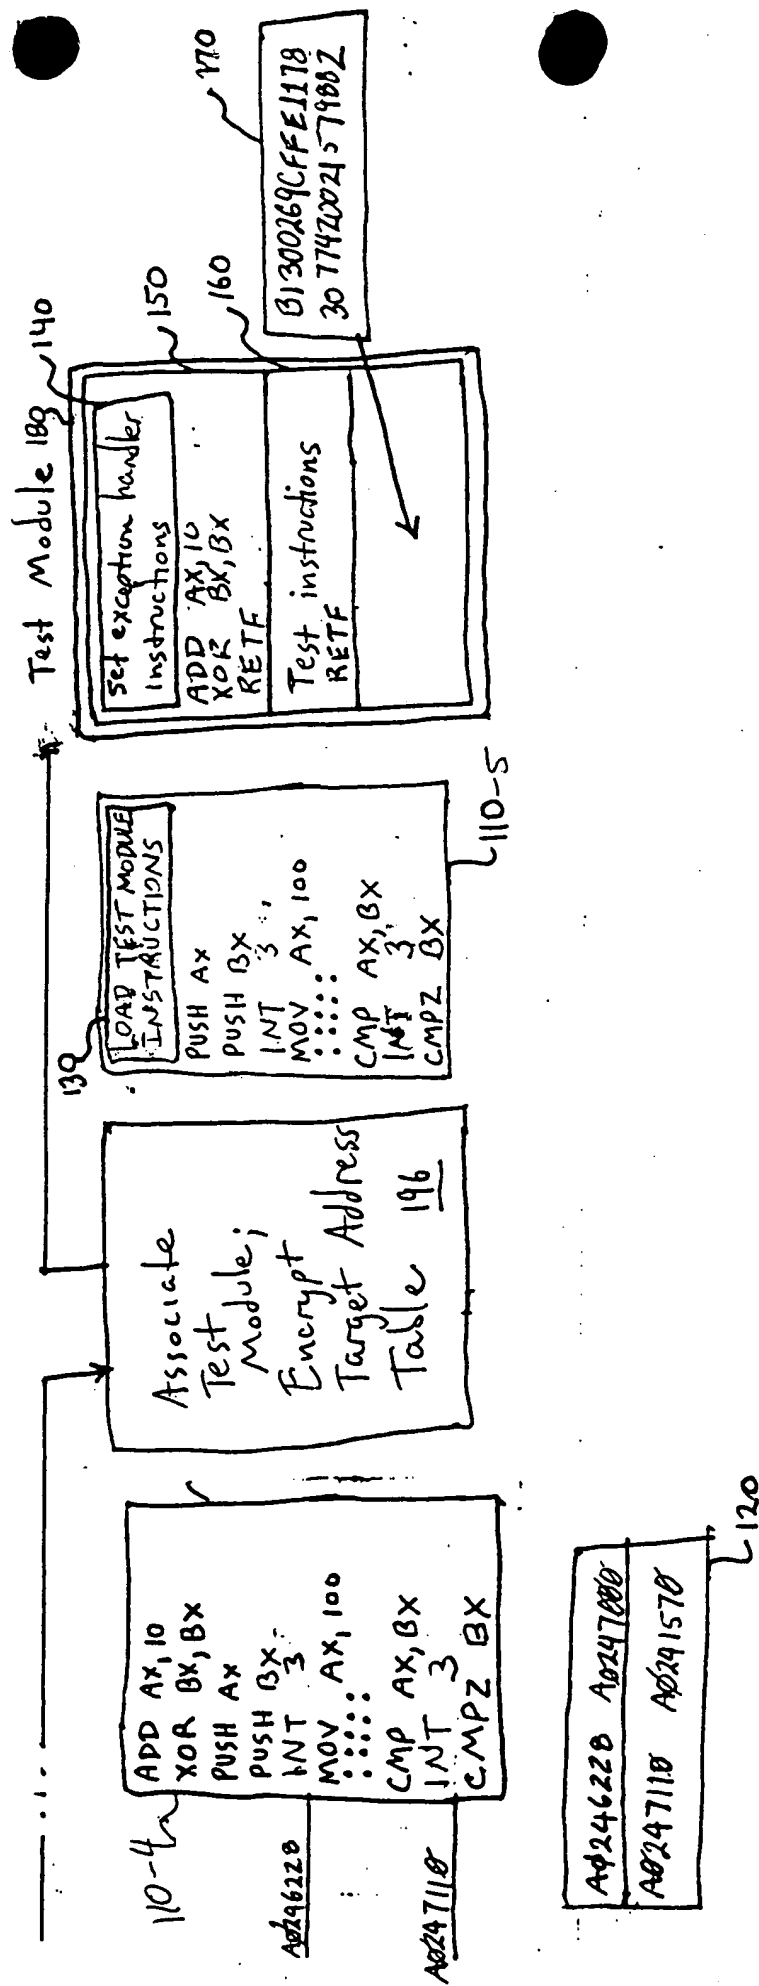 110-4
ADD AX, 10
XOR BX, BX
PUSH AX
PUSH BX
INT 3
MOV AX, 100
: : : : :
CMP AX, BX
INT 3
CMPZ BX
A0246228
A0247110
A0246228 A0247000
A0247110 A0241570
120
Associate
Test
Module;
Encrypt
Target Address
Table 196
130
LOAD TEST MODULE
INSTRUCTIONS
PUSH AX
PUSH BX
INT 3
MOV AX, 100
: : : : :
CMP AX, BX
INT 3
CMPZ BX
110-5
Test Module 180
140
Set exception handler
Instructions
150
ADD AX, 10
XOR BX, BX
RETF
160
Test instructions
RETF
170
B1300269CFFE1178